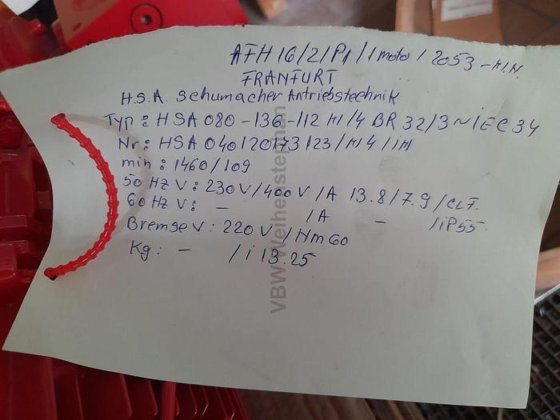 AFH 16/2/P1/1 motor / 2053 - H.N.
FRANFURT
H.S.A. Schumacher Antriebstechnik
Typ: HSA 080-136-112 M/4 BR 32/3~/IEC 34
Nr: HSA 040120173123/M4/1M
min: 1460/109
50 HZ V: 230V/400V/A 13.8/7.9/CL.F.
60 HZ V: - /A - /iP55
Bremse V: 220V/Nm60
Kg: - /i 13.25
VBW Weiherstetermann